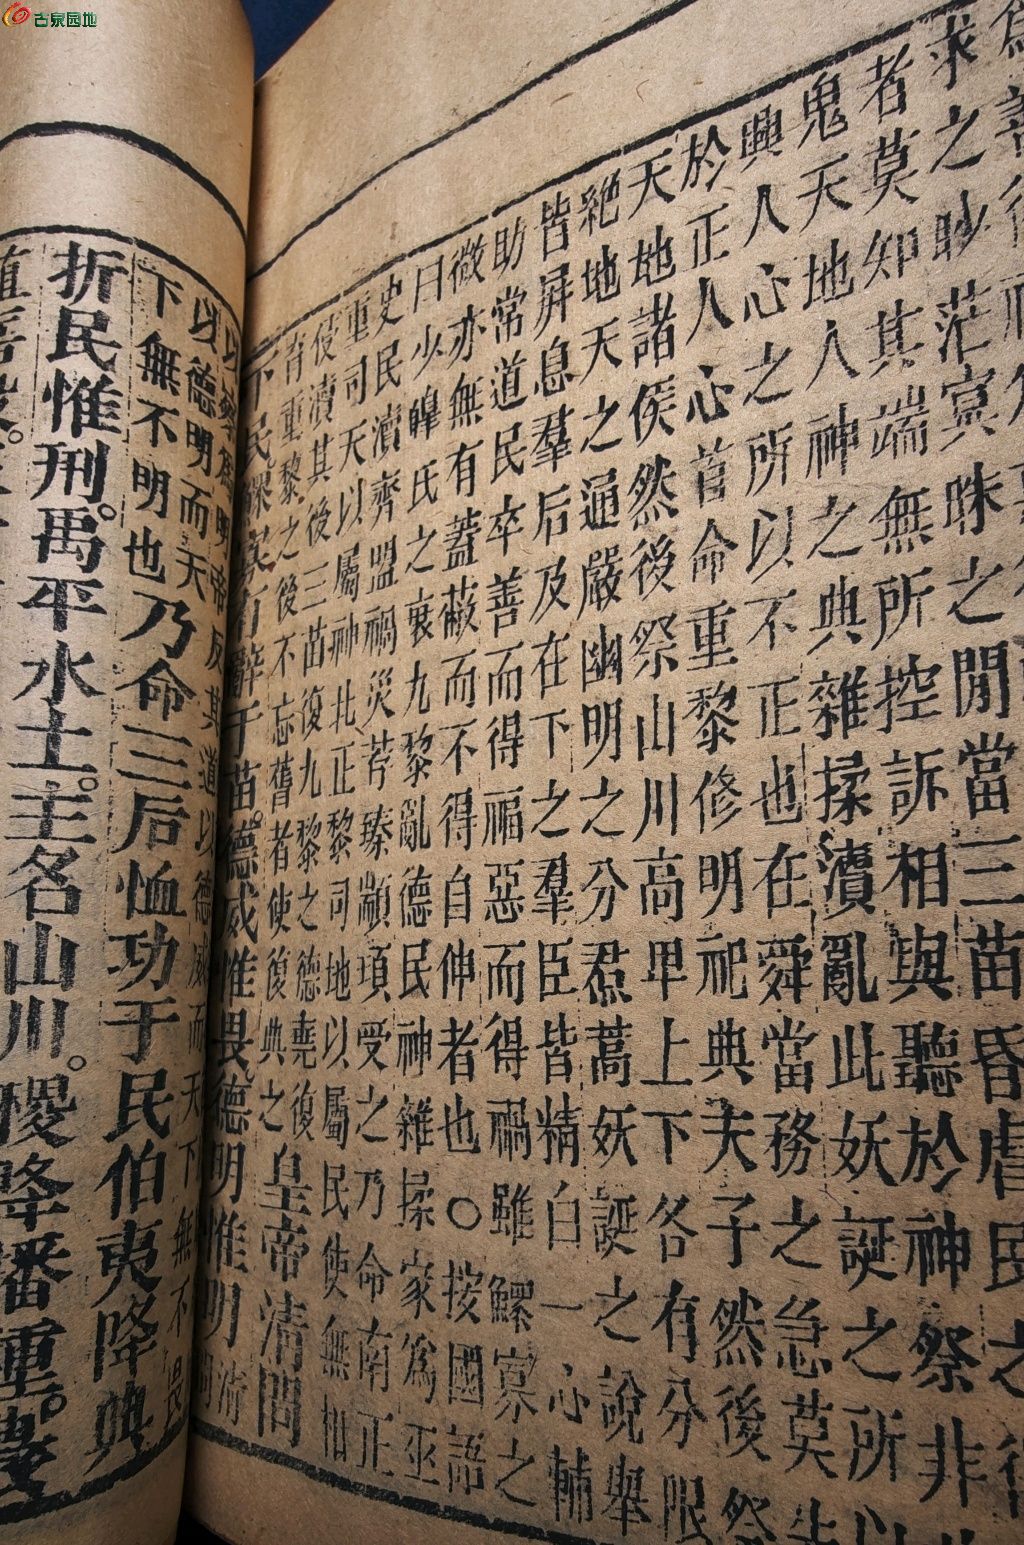 為善得
求之眇茫冥昧之間當三苗昏虐民之得
者莫知其端無所控訴相與聽於神祭非
鬼天地人神之典雜揉瀆亂此妖誕之所以
興人心之所以不正也在舜當務之急莫先
於正人心首命重黎修明祀典天子然後祭
天地諸侯然後祭山川高卑上下各有分限
絶地天之通嚴幽明之分焄蒿妖誕之說舉
皆屏息羣后及在下之羣臣皆精白一心輔
助常道民卒善而得福惡而得禍雖鰥寡之
微亦無有蓋蔽而不得自伸者也○按國語
曰少皞氏之衰九黎亂德民神雜揉家為巫
史民瀆齊盟禍災荐臻顓頊受之乃命南正
重司天以屬神北正黎司地以屬民使無相
侵瀆其後三苗復九黎之德堯復
育重黎之後不忘舊者使復典之皇帝清問
下民鰥寡有辭于苗。德威惟畏。德明惟明清問
以察為明帝反其道以德威而天下無不畏
以德明而天
下無不明也乃命三后恤功于民伯夷降典
折民惟刑。禹平水土。主名山川。稷降播種。農
殖嘉穀。
古泉园地